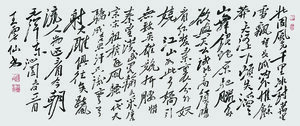 北国风光千里冰封万里
雪飘望长城内外惟余莽
莽大河上下顿失滔滔
山舞银蛇原驰蜡象
欲与天公试比高须
晴日看红装素裹分外妖
娆江山如此多娇引
无数英雄竞折腰惜
秦皇汉武略输文采唐
宗宋祖稍逊风骚一代天
骄成吉思汗只识弯弓
射雕俱往矣数风
流人物还看今朝
毛泽东沁园春雪